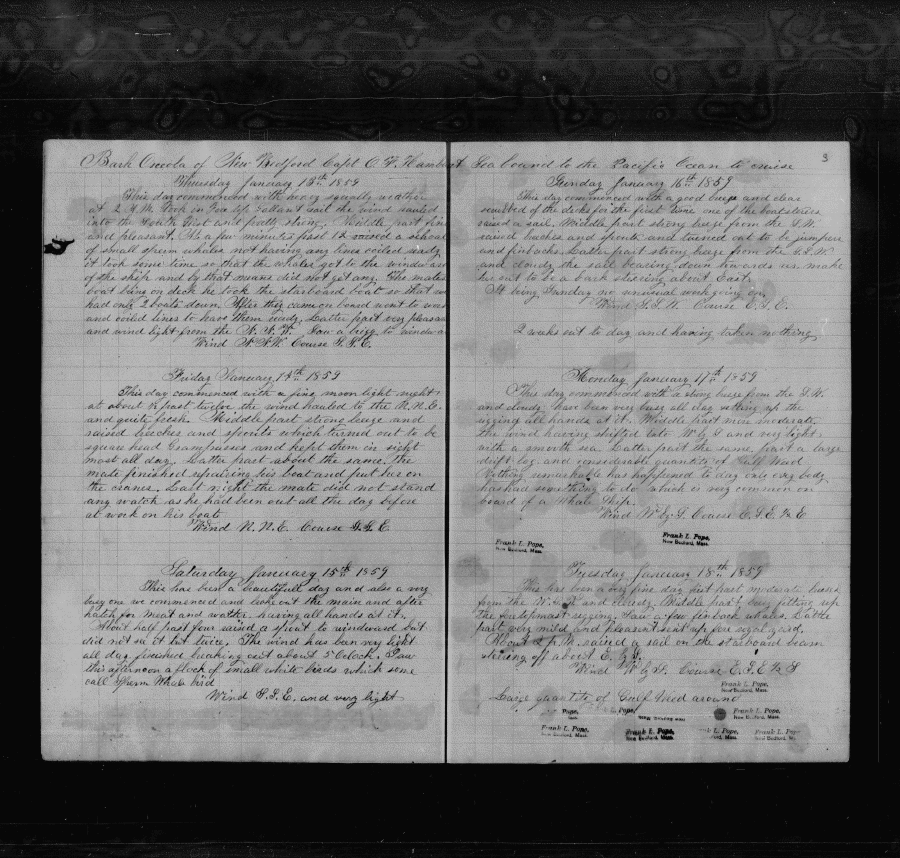 Bark Osceola of New Bedford Capt C. W. Hamblin At Sea bound to the Pacific Ocean to cruise
Thursday January 13th 1859
This day commenced with heavy squally weather
at 2 A.M. took in Fore top Gallant sail the wind hauled
into the North West and pretty strong. Middle part fine
and pleasant. At a few minutes past 12 raised a school
of small sperm whales not having any lines coiled ready
it took some time so that the whales got to the windward
of the ship and by that means did not get any. The mates
boat being on deck he took the starboard boat so that we
had only 2 boats down. After they came on board went to work
and coiled lines to have them ready. Latter part very pleasant
and wind light from the N.N.W. Saw a brig to windward
Wind N.N.W. Course S.S.E.
Friday January 14th 1859
This day commenced with a fine moon light night
at about ½ past twelve the wind hauled to the N.N.E.
and quite fresh. Middle part strong breeze and
raised breaches and spouts which turned out to be
square head Grampuses and kept them in sight
most all day. Latter part about the same. The
mate finished repairing his boat and put her on
the cranes. Last night the mate did not stand
any watch as he had been out all the day before
at work on his boat
Wind N.N.E. Course S.S.E.
Saturday January 15th 1859
This has been a beautifull day and also a very
busy one we commenced and broke out the main and after
hatch for meat and water having all hands at it.
About half past four raised a spout to windward but
did not see it but twice. The wind has ban very light
all day finished breaking out about 5 Oclock. Saw
this afternoon a flock of small white birds which some
call Sperm Whale bird
Wind S.S.E. and very light
3
Sunday January 16th 1859
This day commenced with a good breeze and clear
scrubbed of the decks for the first time one of the boatsteerers
raised a sail. Middle part strong breeze from the S.W.
raised breaches and spouts and turned out to be jumpers
and finbacks. Latter part strong breeze from the S.S.W
and cloudy the sail bearing down towards us make
her out to be a bark steering about East
It being Sunday no unnecessary work going on
Wind S.S.W. Course E.S.E.
2 weeks out to day and having taken nothing
Monday January 17th 1859
This day commenced with a strong breeze from the S.W.
and cloudy have been very busy all day setting up the
rigging all hands at it. Middle part more moderate
the wind having shifted into W by S and very light
with a smooth sea. Latter part the same, past a large
drift log and considerable quantity of Gulf Weed
Nothing remarkable has happened to day only every body
has had something to do which is very common on
board of a Whale Ship.
Wind W by S. Course E.S.E ½ E
Frank L. Pope,
New Bedford, Mass.
Frank L. Pope,
New Bedford, Mass.
Tuesday January 18th 1859
This has been a very fine day first part moderate breeze
from the W. and cloudy. Middle part busy fitting up
the foretopmast rigging. Saw a few finback whales. Latter
part very mild and pleasant sent up fore royal yard.
About 2 P.M. raised a sail on the starboard beam
steering off about E. by S.
Wind W by S. Course E.S.E ½ S
Frank L. Pope,
New Bedford, Mass.
Large quantity of Gulf Weed around
Pope,
Frank L. Pope,
New Bedford, Mass.
Frank L. Pope,
New Bedford, Mass.
Frank L. Pope,
New Bedford, Mass.
L. Pope,
Frank L. Pope,
New Bedford,